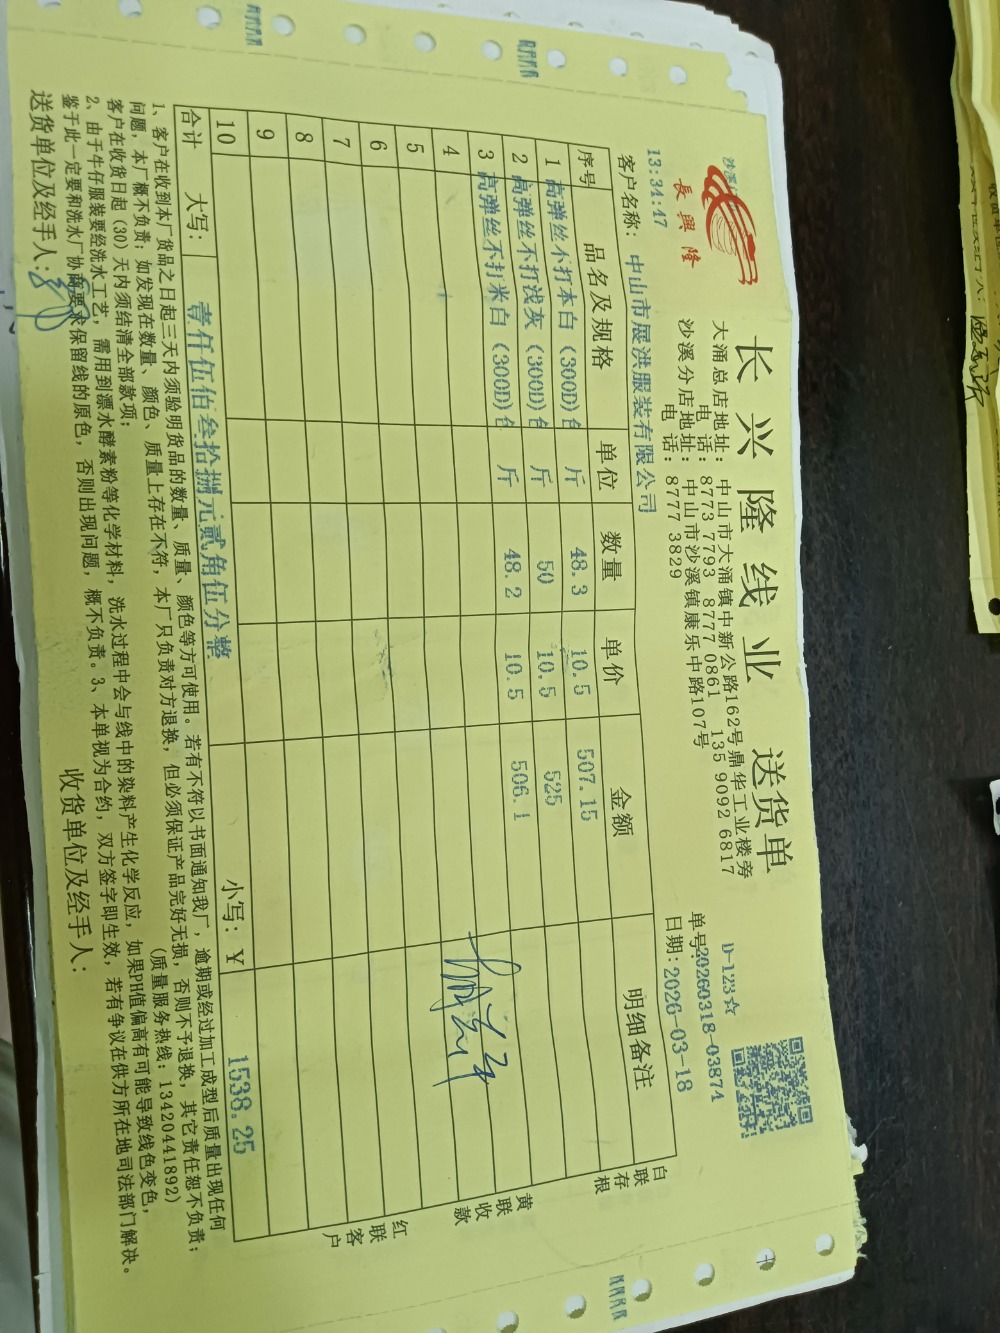 长兴隆线业 送货单
長興隆
大涌总店地址：中山市大涌镇中新公路162号鼎华工业楼旁
电 话：8773 7793 8777 0861 135 9092 6817
沙溪分店地址：中山市沙溪镇康乐中路107号
电 话：8777 3829
D-123☆
单号:20260318-03874
日期:2026-03-18
13:34:47
客户名称：中山市展洪服装有限公司
序号 品名及规格 单位 数量 单价 金额 明细备注
1 高弹丝不打本白（300D) 斤 48.3 10.5 507.15
2 高弹丝不打浅灰（300D) 斤 50 10.5 525
3 高弹丝不打米白（300D) 斤 48.2 10.5 506.1
4
5
6
7
8
9
10
合计 大写：壹仟伍佰叁拾捌元贰角伍分整 小写：￥ 1538.25
白联存根
黄联收款
红联客户
1、客户在收到本厂货品之日起三天内须验明货品的数量、质量、颜色等方可使用。若有不符以书面通知我厂，逾期或经过加工成型后质量出现任何
问题，本厂概不负责；如发现在数量、颜色、质量上存在不符，本厂只负责对方退换，但必须保证产品完好无损，否则不予退换，其它责任恕不负责；
客户在收货日起（30）天内须结清全部款项；
（质量服务热线：13420441892）
2、由于牛仔服装要经洗水工艺，需用到漂水酵素粉等化学材料，洗水过程中会与线中的染料产生化学反应，如果PH值偏高有可能导致线色变色，
鉴于此一定要和洗水厂协商要求保留线的原色，否则出现问题，概不负责。3、本单视为合约，双方签字即生效，若有争议在供方所在地司法部门解决。
送货单位及经手人：
收货单位及经手人：